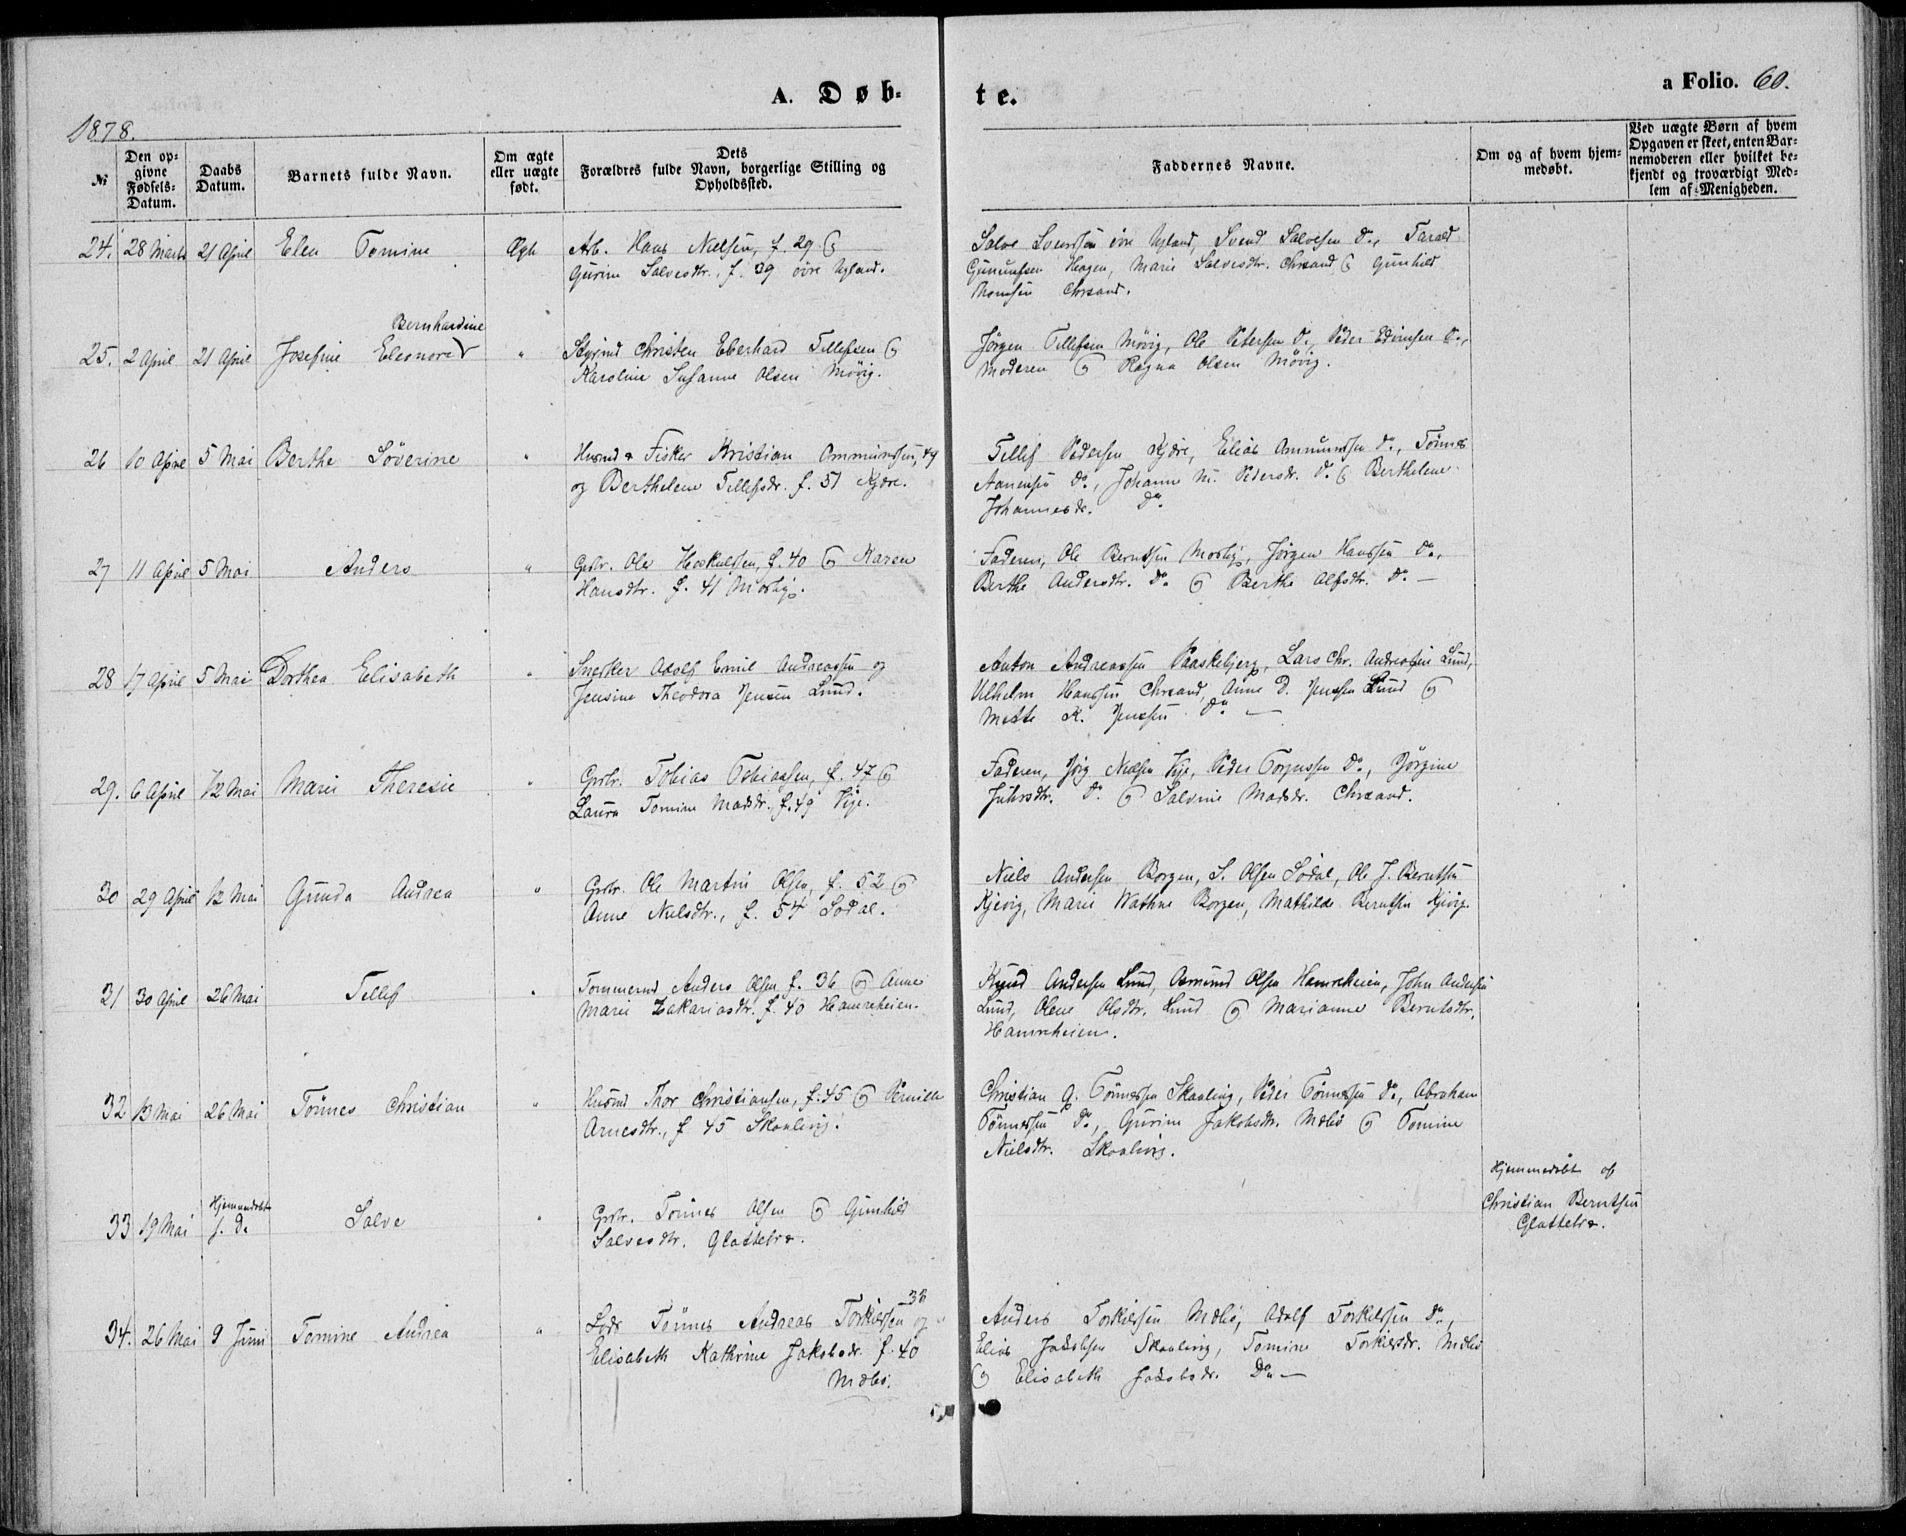 A. Døb-
te.
a Folio. 60.
1878.
№
Den op-
givne
Fødsels-
Datum.
Daabs
Datum.
Barnets fulde Navn.
Om ægte
eller uægte
født.
Dets
Forældres fulde Navn, borgerlige Stilling og
Opholdssted.
Faddernes Navne.
Om og af hvem hjem-
medøbt.
Ved uægte Børn af hvem
Opgaven er skeet, enten Bar-
nemoderen eller hvilket be-
kjendt og troværdigt Med-
lem af Menigheden.
24. 28 Marts 21 April Elen Tomine Ægte Arb. Hans Nielsen, f. 29 &
Gurine Salvesdtr. f. 39 övre Ugland.
Salve Svendsen övre Ugland, Svend Salvesen Do, Tarald
Gunuufsen Hagen, Marie Salvesdtr. Chrsand & Gunhild
Thomsen Chrsand.
Bernhardine
25. 2 April 21 April Josefine Eleonore " Styrmd Christen Eberhard Tellefsen &
Karoline Susanne Olsen Møvig.
Jørgen Tellefsen Møvig, Ole Petersen Do, Peder Edvinsen Do,
Moderen & Ragna Olsen Møvig.
26 10 April 5 Mai Berthe Söverine " Husmd & Fisker Kristian Ommundsen, 49
og Berthelene Tellefsdr. f. 51 Kjdre.
Tellef Pedersen Kjdre, Elias Ommundsen Do, Tönnes
Aanensen Do, Johanne M. Pedersdr. Do & Berthelene
Johannesdr. Do
27 11 April 5 Mai Anders " Grdbr. Ole Hoskuldsen, f. 40 & Karen
Hansdtr. f. 41 Mosby.
Faderen, Ole Berntsen Mosby, Jørgen Hanssen Do,
Berthe Andersdtr. Do & Berthe Alfsdtr. Do —
28 17 April 5 Mai Dorthea Elisabeth " Snedker Adolf Emil Andreassen og
Jensine Theodora Jensen Lund.
Anton Andreassen Paaskebjerg, Lars Chr. Andreassen Lund,
Vilhelm Hanssen Chrsand, Anne D. Jenssen Lund &
Mette K. Jenssen Do —
29. 6 April 12 Mai Marie Theresie " Grdbr. Tobias Tobiassen, f. 47 &
Laura Tomine Madsdtr. f. 49 Vije.
Faderen, Jörg Nielsen Vije, Peder Torjussen Do, Jörgine
Do & Salvine Madsdr. Chrsand.
30 29 April 12 Mai Gunda Andrea " Grdbr. Ole Martin Olsen, f. 52 &
Anne Nielsdtr., f. 54 Sødal.
Niels Andersen Borgen, S. Olsen Sødal, Ole J. Berntsen
Kjevig, Marie Wathne Borgen, Mathilde Berntsen Kjevig.
31 30 April 26 Mai Tellef " Tømmermd Anders Olsen f. 36 & Anne
Marie Zakariasdtr. f. 40 Hamreheien.
Knud Andersen Lund, Osmund Olsen Hamreheien, John Andersen
Lund, Olene Olsdtr. Lund & Marianne Berntsdtr.
Hamreheien.
32 13 Mai 26 Mai Tönnes Christian " Husmd Thor Christiansen, f. 45 & Pernille
Arnesdtr., f. 45 Skaalevig.
Christian G. Tönnessen Skaalevig, Peder Tönnessen Do, Abraham
Tönnessen Do, Gurine Jakobsdtr. Mæbø & Tomine
Nielsdtr. Skaalevig.
33 19 Mai Hjemmedöbt
s. D. Salve " Grdbr. Tönnes Olsen & Gunhild
Salvesdtr. Glattetre.
Hjemmedöbt af
Christian Berntsen
Glattetre.
34. 26 Mai 9 Juni Tomine Andrea " Lods Tönnes Andreas Torkildsen 38 og
Elisabeth Kathrine Jakobsdr. f. 40
Mæbø.
Anders Torkildsen Mæbø, Adolf Torkildsen Do,
Elias Jakobsen Skaalevig, Tomine Torkildsdr. Mæbø
& Elisabeth Jakobsdr. Do —